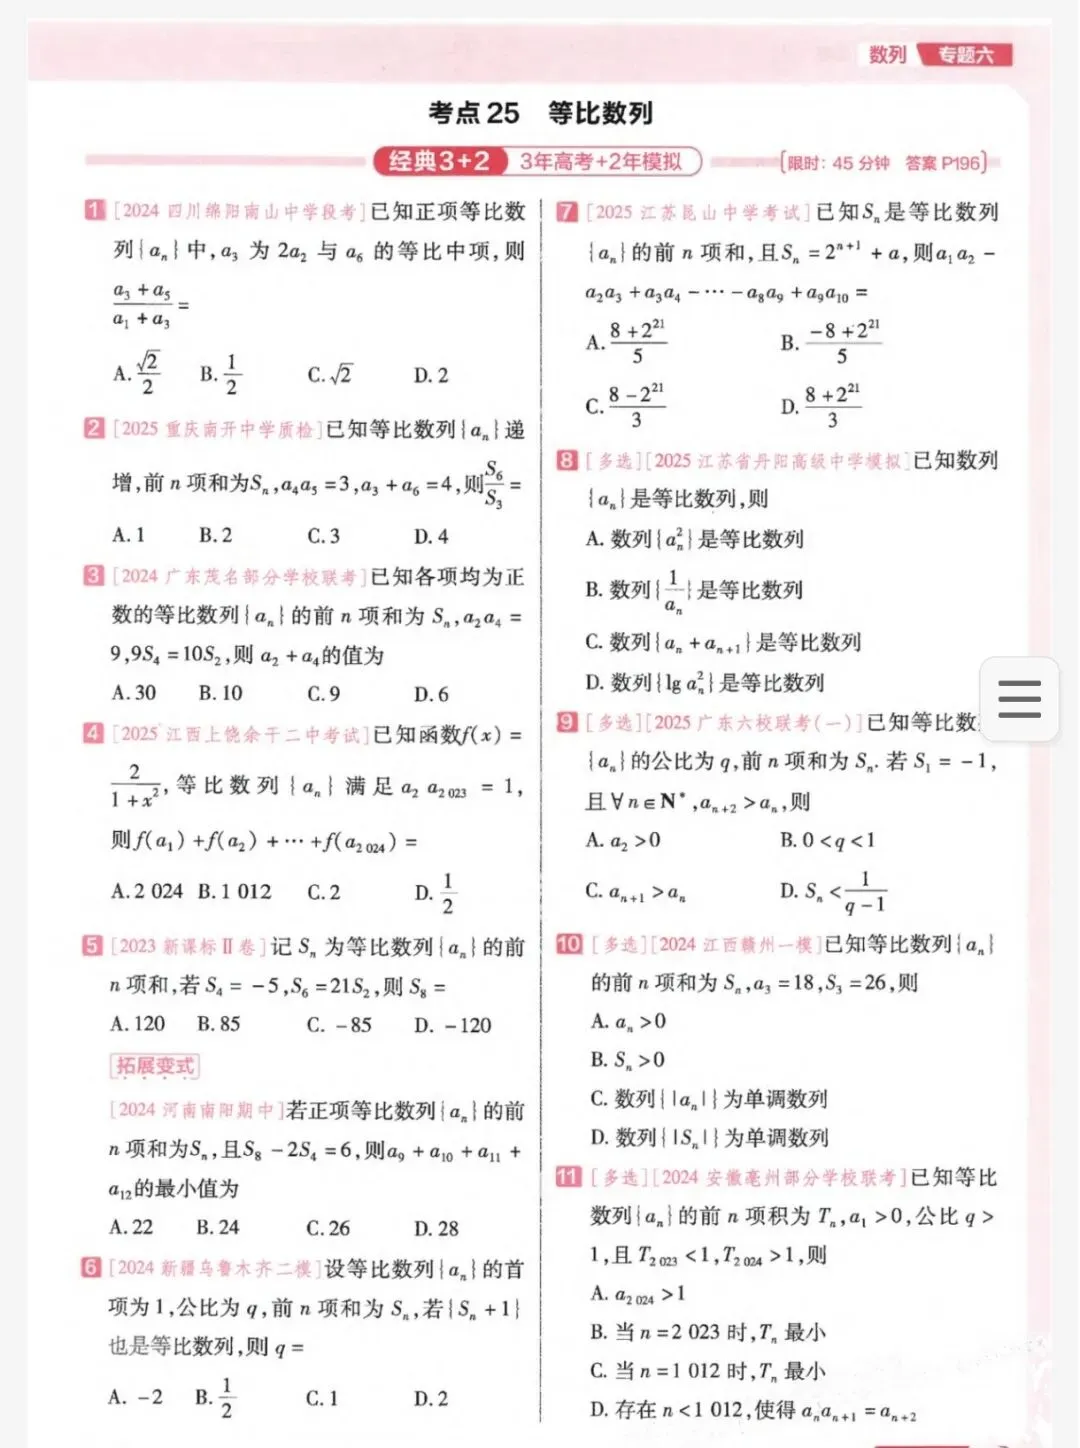 数列 专题六
考点 25 等比数列
经典3+2 3年高考+2年模拟 [限时: 45 分钟 答案 P196]
1 [2024 四川绵阳南山中学段考]已知正项等比数
列{aₙ}中,a₃ 为 2a₂ 与 a₆ 的等比中项,则
(a₃ + a₅)/(a₁ + a₃) =
A. √2/2 B. 1/2 C. √2 D. 2
2 [2025 重庆南开中学质检]已知等比数列{aₙ}递
增,前 n 项和为Sₙ,a₄a₅ =3,a₃ +a₆ =4,则S₆/S₃ =
A. 1 B. 2 C. 3 D. 4
3 [2024 广东茂名部分学校联考]已知各项均为正
数的等比数列{aₙ}的前 n 项和为 Sₙ,a₂a₄ =
9,9S₄ =10S₂,则 a₂ +a₄的值为
A. 30 B. 10 C. 9 D. 6
4 [2025 江西上饶余干二中考试]已知函数f(x) =
2/(1+x²),等比数列{aₙ}满足 a₂ a₂ ₀₂₃ = 1,
则f(a₁) +f(a₂) + ⋯ +f(a₂ ₀₂₄) =
A. 2 024 B. 1 012 C. 2 D. 1/2
5 [2023 新课标Ⅱ卷]记 Sₙ 为等比数列{aₙ}的前
n 项和,若 S₄ = -5,S₆ =21S₂,则 S₈ =
A. 120 B. 85 C. -85 D. -120
拓展变式
[2024 河南南阳期中]若正项等比数列{aₙ}的前
n 项和为Sₙ,且S₈ -2S₄ =6,则a₉ + a₁₀ + a₁₁ +
a₁₂的最小值为
A. 22 B. 24 C. 26 D. 28
6 [2024 新疆乌鲁木齐二模]设等比数列{aₙ}的首
项为1,公比为 q,前 n 项和为 Sₙ,若{Sₙ +1}
也是等比数列,则 q =
A. -2 B. 1/2 C. 1 D. 2
7 [2025 江苏昆山中学考试]已知Sₙ是等比数列
{aₙ}的前 n 项和,且Sₙ = 2ⁿ⁺¹ + a,则a₁a₂ -
a₂a₃ +a₃a₄ - ⋯ -a₈a₉ +a₉a₁₀ =
A. (8+2²¹)/5 B. (-8+2²¹)/5
C. (8-2²¹)/3 D. (8+2²¹)/3
8 [多选][2025 江苏省丹阳高级中学模拟]已知数列
{aₙ}是等比数列,则
A. 数列{aₙ²}是等比数列
B. 数列{1/aₙ}是等比数列
C. 数列{aₙ + aₙ₊₁}是等比数列
D. 数列{lg aₙ²}是等比数列
9 [多选][2025 广东六校联考(一)]已知等比数
{aₙ}的公比为 q,前 n 项和为 Sₙ. 若 S₁ = -1,
且∀n∈N*,aₙ₊₂ >aₙ,则
A. a₂ >0 B. 0<q<1
C. aₙ₊₁ >aₙ D. Sₙ < 1/(q-1)
10 [多选][2024 江西赣州一模]已知等比数列{aₙ}
的前 n 项和为 Sₙ,a₃ =18,S₃ =26,则
A. aₙ >0
B. Sₙ >0
C. 数列{|aₙ|}为单调数列
D. 数列{|Sₙ|}为单调数列
11 [多选][2024 安徽亳州部分学校联考]已知等比
数列{aₙ}的前 n 项积为 Tₙ,a₁ >0,公比 q >
1,且 T₂ ₀₂₃ <1,T₂ ₀₂₄ >1,则
A. a₂ ₀₂₄ >1
B. 当 n =2 023 时,Tₙ 最小
C. 当 n =1 012 时,Tₙ 最小
D. 存在 n<1 012,使得 aₙaₙ₊₁ =aₙ₊₂